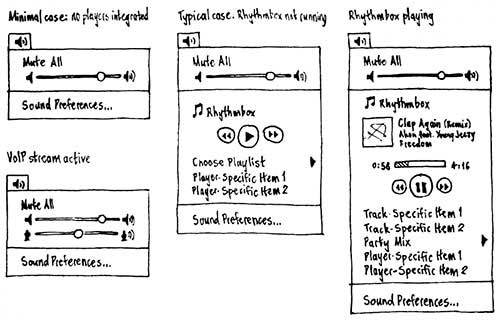 Minimal case: no players integrated
Mute All
Sound Preferences...
VoIP stream active
Mute All
Sound Preferences...
Typical case. Rhythmbox not running
Mute All
Rhythmbox
Choose Playlist
Player-Specific Item 1
Player-Specific Item 2
Sound Preferences...
Rhythmbox playing
Mute All
Rhythmbox
Clap Again (Remix)
Akon feat. Young Jeezy
Freedom
0:56 4:16
Track-Specific Item 1
Track-Specific Item 2
Party Mix
Player-Specific Item 1
Player-Specific Item 2
Sound Preferences...